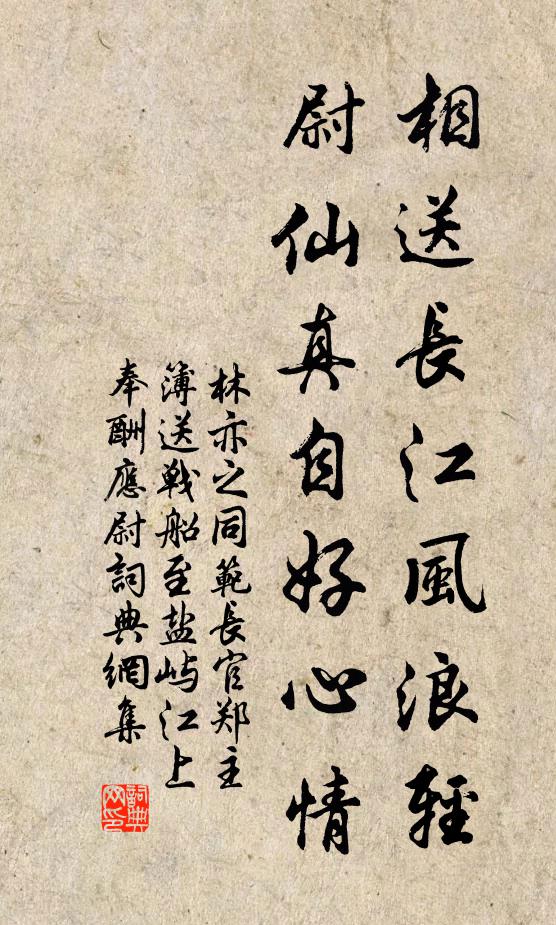 相送長江風浪輕
尉仙真自好心情
林亦之同範長官郑主
簿送戰船至盐屿江上
奉酬應尉詞典網集
詞典
网印